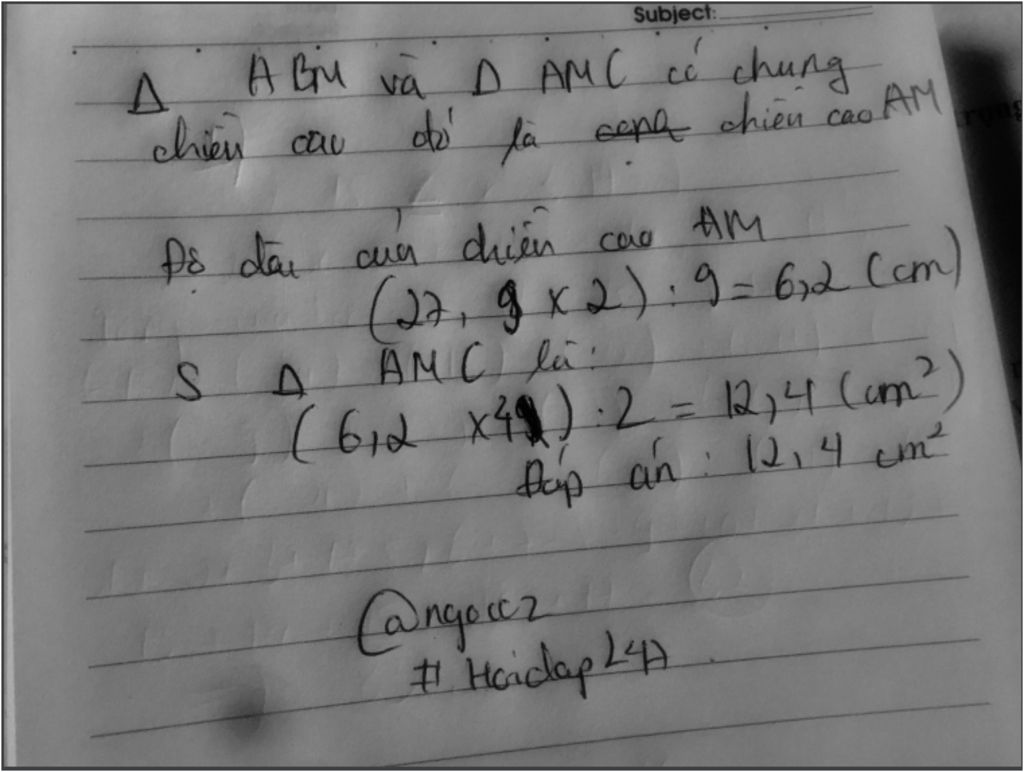 Subject:
Δ ABM và Δ AMC có chung
chiều cao đó là chiều cao AM
Độ dài của chiều cao AM
(27, 9 x 2) : 9 = 6,2 (cm)
S Δ AMC là:
(6,2 x 4) : 2 = 12,4 (cm²)
Đáp án : 12,4 cm²
@ngoccz
# Hoidap247